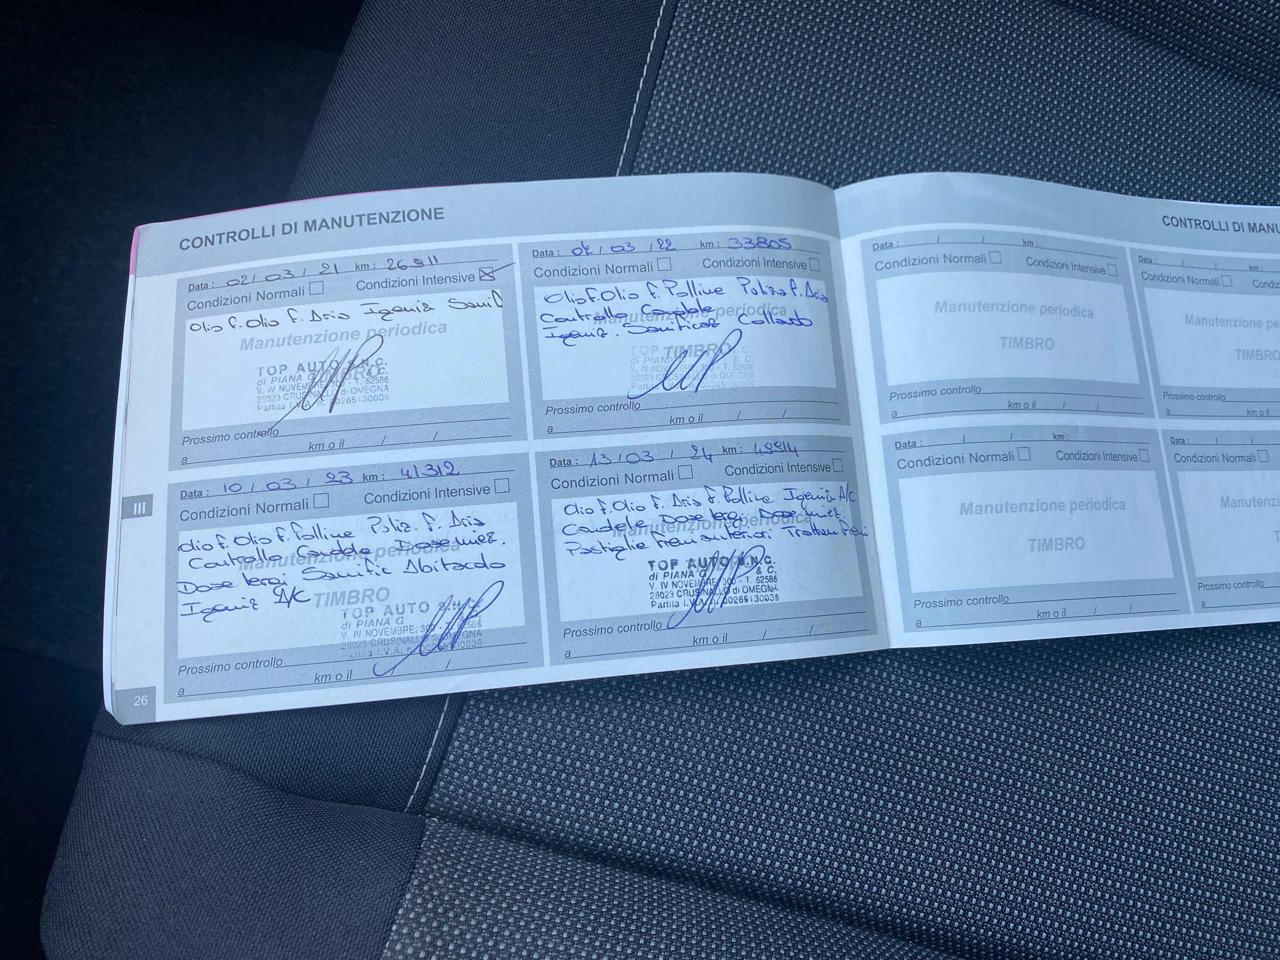 CONTROLLI DI MANUTENZIONE
Data: 02/03/21 km: 26911
Condizioni Normali Condizioni Intensive
Olio f. Olio f. Aria Igeniz Sanif
Manutenzione periodica
TOP AUTO S.N.C.
di PIANA G. & C.
V. IV NOVEMBRE, - T. 62586
28023 CRUSINALLO di OMEGNA
Partita I.V.A.
Prossimo controllo
a km o il / /
Data: 02/03/22 km: 33805
Condizioni Normali Condizioni Intensive
Olio f. Olio f. Polline Puliz. f. Aria
Controllo Candele
Manutenzione periodica
Igeniz. Sanificaz Collaudo
TIMBRO
TOP
di PIANA & C.
28023 CRUSINALLO di OMEGNA
Prossimo controllo
a km o il / /
Data: 10/03/23 km: 41312
Condizioni Normali Condizioni Intensive
Olio f. Olio f. Polline Puliz. f. Aria
Controllo Candele
Manutenzione periodica
Sanific Abitacolo
Igeniz A/C
TIMBRO
TOP AUTO S.N.C.
di PIANA G
V. IV NOVEMBRE,
28023 CRUSINALLO di OMEGNA
Partita I.V.A.
Prossimo controllo
a km o il / /
Data: 13/03/24 km:
Condizioni Normali Condizioni Intensive
Olio f. Olio f. Aria f. Polline Igeniz A/C
Candele
Manutenzione periodica
Pastiglie freni anteriori Trattam freni
TOP AUTO S.N.C.
di PIANA & C.
V. IV NOVEMBRE, 300 - T. 62586
28023 CRUSINALLO di OMEGNA
Partita I.V.A. 00265130035
Prossimo controllo
a km o il / /
III
26
CONTROLLI DI MANU
Data: / / km:
Condizioni Normali Condizioni Intensive
Manutenzione periodica
TIMBRO
Prossimo controllo
a km o il / /
Data: / / km:
Condizioni Normali Condiz
Manutenzione pe
TIMBRO
Prossimo controllo
a km o il
Data: / / km:
Condizioni Normali Condizioni Intensive
Manutenzione periodica
TIMBRO
Prossimo controllo
a km o il / /
Data: / / km:
Condizioni Normali
Manutenz
TI
Prossimo controllo
a